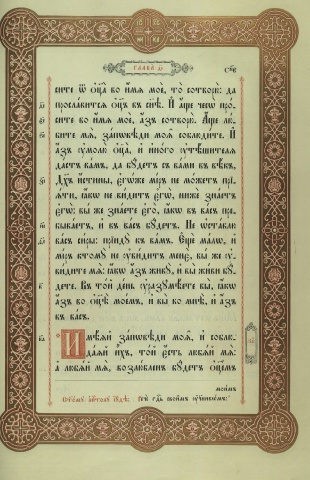 ГЛАВА̀
сите ѿ ѻц҃а̀ во и҆́мѧ моѐ, то̀ сотворю̀: да
просла́витсѧ ѻц҃ъ въ сн҃ѣ. И҆ а҆́ще чесѡ̀ про́-
сите во и҆́мѧ моѐ, а҆́зъ сотворю̀. А҆́ще лю́-
бите мѧ̀, за́пѡвѣди моѧ̑ соблюди́те. И҆
а҆́зъ ᲂу҆молю̀ ѻц҃а̀, и҆ и҆но́го ᲂу҆тѣ́шителѧ
да́стъ ва́мъ, да бꙋ́детъ съ ва́ми въ вѣ́къ,
Дх҃ъ и҆́стины, є҆гѡ́же мі́ръ не мо́жетъ прїѧ́-
ти, ꙗ҆́кѡ не ви́дитъ є҆гѡ̀, нижѐ зна́етъ
є҆гѡ̀: вы́ же зна́ете є҆го̀, ꙗ҆́кѡ въ ва́съ пре-
быва́етъ, и҆ въ ва́съ бꙋ́детъ. Не ѡ҆ста́влю
ва́съ си́ры: прїидꙋ̀ къ ва́мъ. Є҆щѐ ма́лѡ, и҆
мі́ръ ктомꙋ̀ не ᲂу҆ви́дитъ менѐ, вы́ же ᲂу҆-
ви́дите мѧ̀: ꙗ҆́кѡ а҆́зъ живꙋ̀, и҆ вы̀ жи́ви бꙋ́-
дете. Въ то́й де́нь ᲂу҆разꙋмѣ́ете вы̀, ꙗ҆́кѡ
а҆́зъ во ѻц҃ѣ̀ мое́мъ, и҆ вы̀ во мнѣ̀, и҆ а҆́зъ
въ ва́съ.
И҆мѣ́ѧй за́пѡвѣди моѧ̑, и҆ соблю-
да́ѧй и҆̀хъ, то́й є҆́сть любѧ́й мѧ̀:
а҆ любѧ́й мѧ̀, возлю́бленъ бꙋ́детъ ѻц҃е́мъ
мои́мъ
речѐ гдⷭ҇ь свои̑мъ ᲂу҆ченикѡ́мъ: